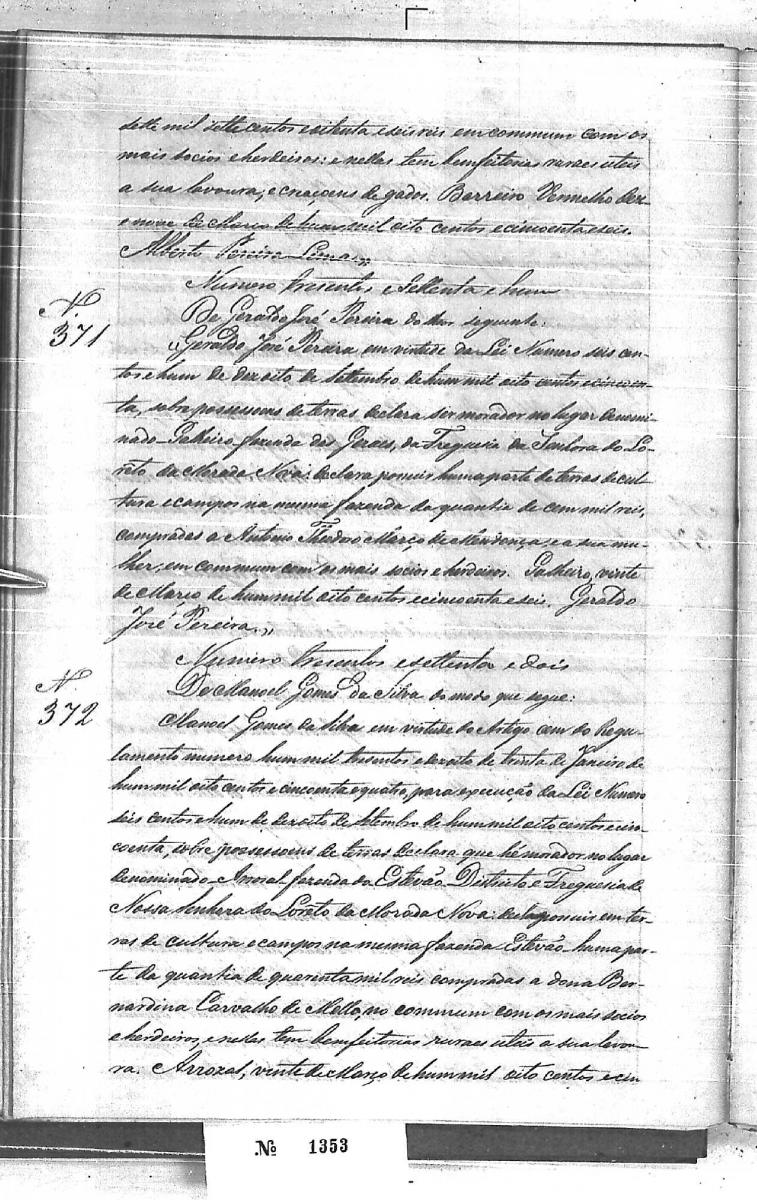 sette mil sette centos e oitenta e seis reis em commum com os
mais socios e herdeiros: e nellas tem bemfeitorias ruraes uteis
a sua lavoura, e criaçoens de gados. Barreiro Vermelho dez
e nove de Março de hum mil oito centos e cincoenta e seis.
Alberto Pereira Lima.,,
Numero tresentos e settenta e hum
N.
371
De Geraldo José Pereira do theor seguinte:
,,Geraldo José Pereira em virtude da Lei Numero seis cen-
tos e hum de dezoito de Settembro de hum mil oito centos e cincoen-
ta, sobre possessoens de terras declara ser morador no lugar denomi-
nado Palheiro fazenda das Geraes, da Freguesia da Senhora do Lo-
reto da Morada Nova: declara possuir huma parte de terras de cul-
tura e campos na mesma fazenda da quantia de cem mil reis,
compradas a Antonio Theodoro de Mendonça, e a sua mu-
lher, em commum com os mais socios e herdeiros. Palheiro, vinte
de Março de hum mil oito centos e cincoenta e seis. Geraldo
José Pereira.,,
Numero tresentos e settenta e dois
N.
372
De Manoel Gomes da Silva do modo que segue:
Manoel Gomes da Silva em virtude do Artigo cem do Regu-
lamento numero hum mil tresentos e dezoito de trinta de Janeiro de
hum mil oito centos e cincoenta e quatro, para execução da Lei Numero
seis centos e hum de dezoito de Setembro de hum mil oito centos e cin-
coenta, sobre possessoens de terras declara que hé morador no lugar
denominado Arrozal, fazenda do Estevão, Districto e Freguesia de
Nossa Senhora do Loreto da Morada Nova: possuir em ter-
ras de cultura e campos na mesma fazenda Estevão huma par-
te da quantia de quarenta mil reis compradas a dona Ber-
nardina Carvalho de Mello, no commum com os mais socios
e herdeiros, e nellas tem bemfeitorias ruraes uteis a sua lavou-
ra. Arrozal, vinte de Março de hum mil oito centos e cin
Nº 1353